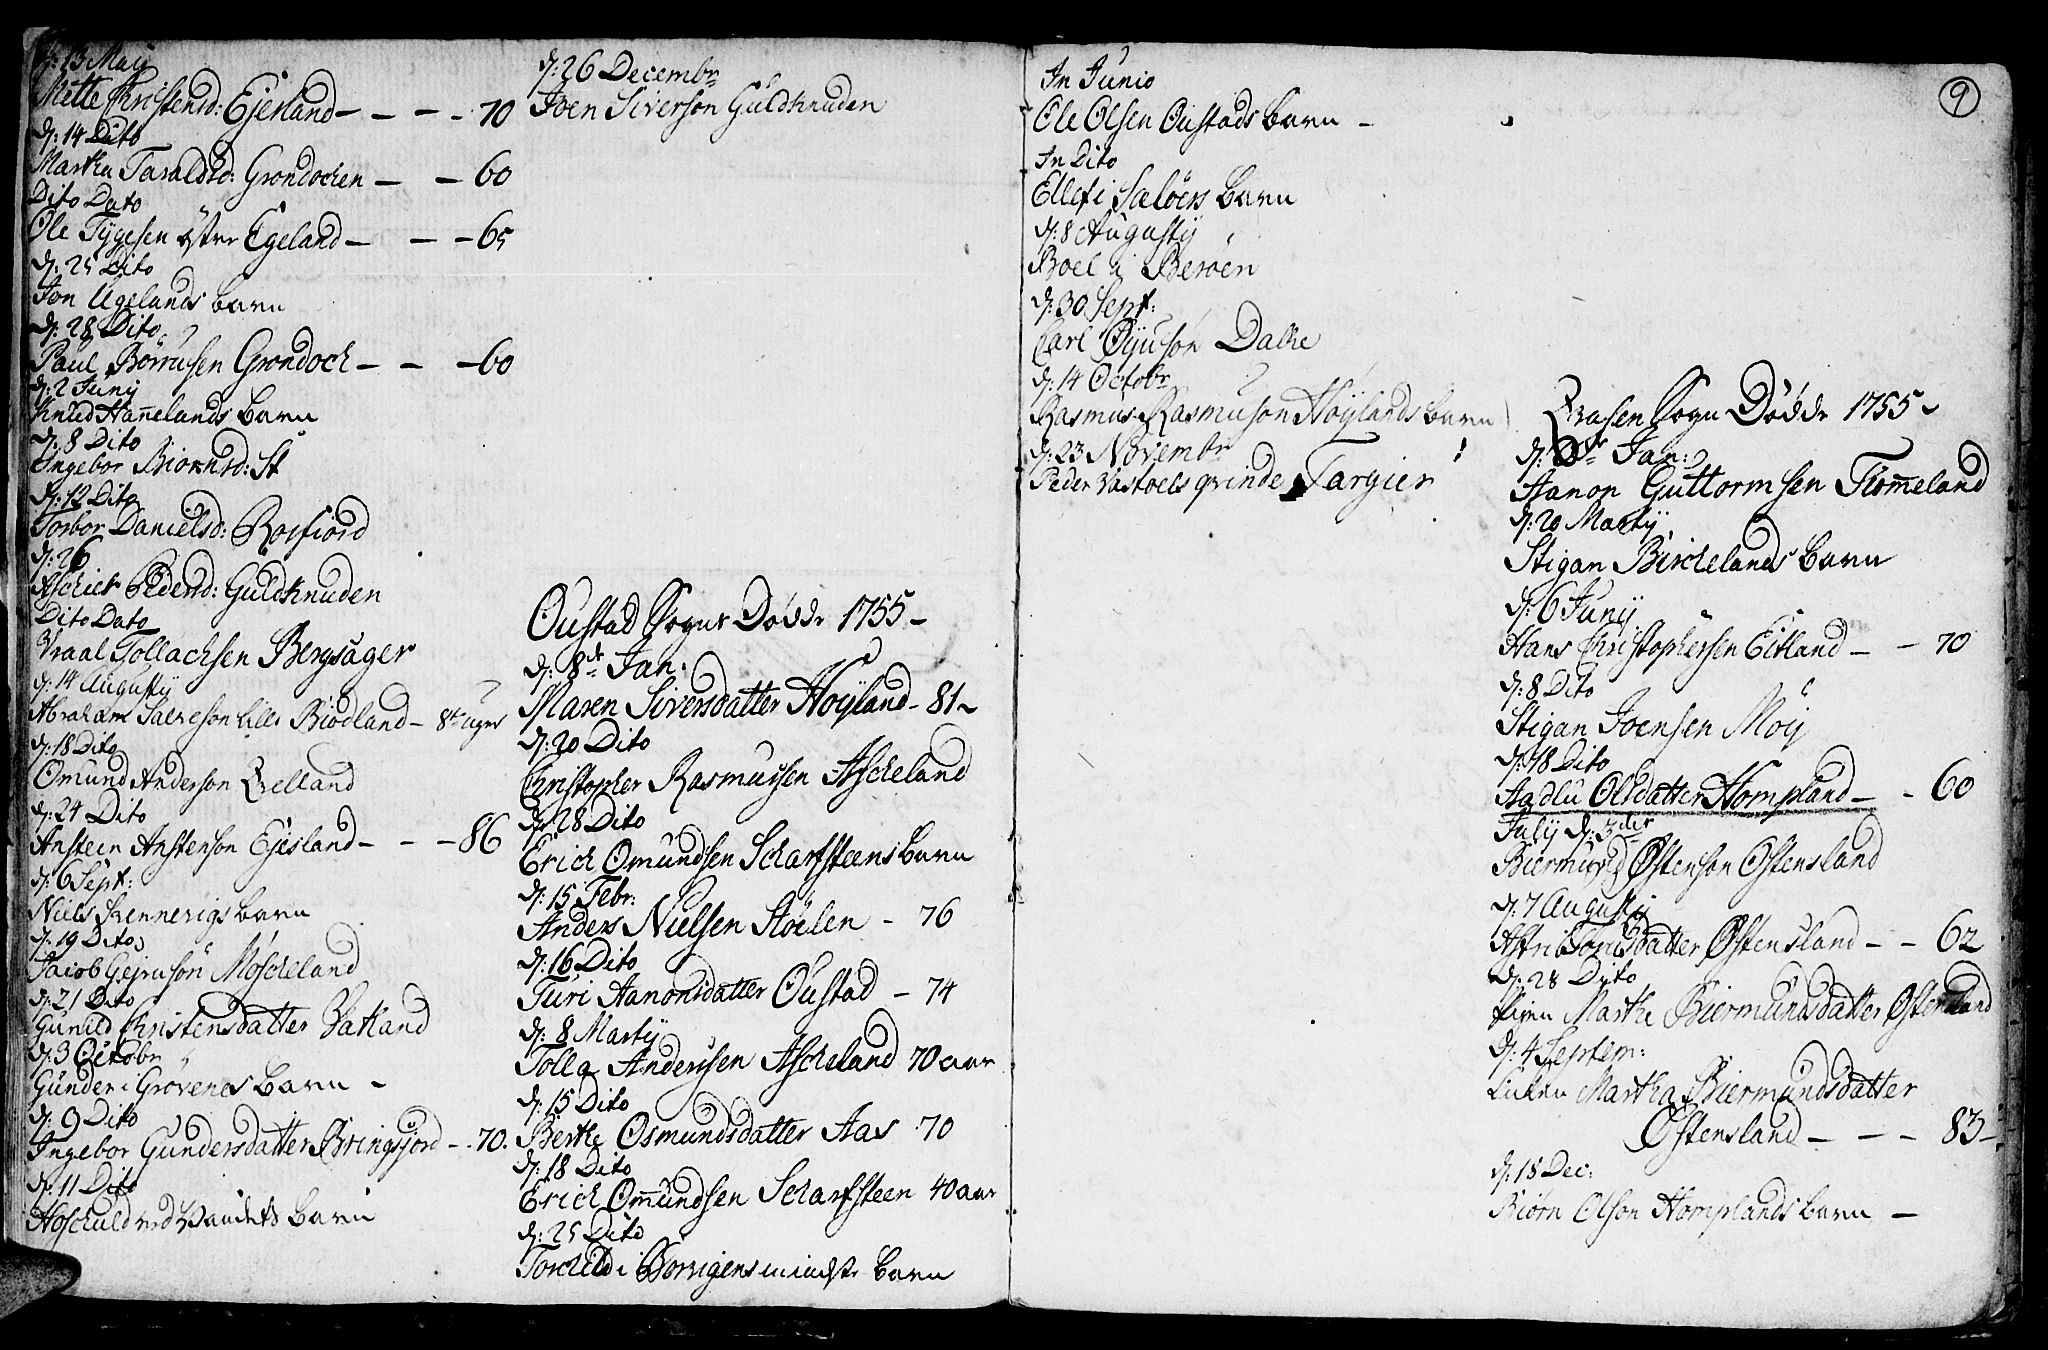 d: 13 Maij
Mette Christensd: Ejersland - - - - 70
d: 14 Dito
Martha Taraldsd: Grondochen - - 60
Dito Dato
Ole Tÿgesen östre Egeland - - - 65
d: 25 Dito
Jon Ugelands barn
d: 28 Dito
Paul Börrusen Grondoch - - - 60
d: 2 Junij
Knud Hannelands barn
d: 8 Dito
Ingebor Biornsd: St
d: 12 Dito
Torbor Danielsd: Rosfiord
d: 26
Aschier Pedersd: Guldknuden
Dito Dato
Vraal Tollachsen Bergsager
d: 14 Augustij
Abraham Salveson lille Biodland - 8t uger
d: 18 Dito
Omund Anderson Qvelland
d: 24 Dito
Ansteen Anstenson Ejesland - - - 86
d: 6 Sept:
Niels Kennerigs barn
d: 19 Dito
Jacob Gejruson Möscheland
d: 21 Dito
Gunild Christensdatter Vatland
d: 3 Octobr
Gunder i Grövenes barn -
d: 9 Dito
Ingebor Gundersdatter Bringsjord - 70.
d: 11 Dito
Hoschuld ved Vandets barn
d: 26 Decembr
Joen Siverson Guldknuden
Oustad Sogns Dödde 1755 -
d: 8de Jan:
Maren Siversdatter Höÿland - 81 -
d: 20 Dito
Christopher Rasmussen Ascheland
d: 28 Dito
Erich Omundsen Scharfsteens barn
d: 15 Febr:
Anders Nielsen Stöelen - 76
d: 16 Dito
Turi Aanonsdatter Oustad - 74
d: 8 Martij
Tolla Andersen Ascheland 70 aar
d: 15 Dito
Berthe Osmundsdatter Aas 70
d: 18 Dito
Erich Omundsen Scharfsteen 40 aar
d: 25 Dito
Torchild i Borrigens mindste barn
9
In Junio
Ole Olsen Oustads barn -
In Dito
Ellef i Salöers barn
d: 8 Augustij
Boel i Beröen
d: 30 Sept:
Carl Öÿuson Dalke
d: 14 Octobr
Rasmus Rasmuson Höÿlands barn
d: 23 Novembr
Peder Vastoels qvinde Targier
Qvasen Sogn Dödde 1755 -
d: Jan:
Aanon Guttormsen Flommeland
d: 20 Martij
Stigan Birchelands barn
d: 6 Junij
Hans Christophersen Eitland - - 70
d: 8 Dito
Stigan Joensen Moij
d: 18 Dito
Aadlu Olsdatter Hompland - - 60
Julij d: 3der
Biermund Östenson Östensland
d: 7 Augustij
Astri Tomsdatter Östensland - - 62
d: 28 Dito
Pigen Marthe Biermundsdatter Östensland
d: 4 Septem:
Enken Martha Biermundsdatter
Östensland - - - 83 -
d: 18 Dec:
Biörn Olson Homplands barn -